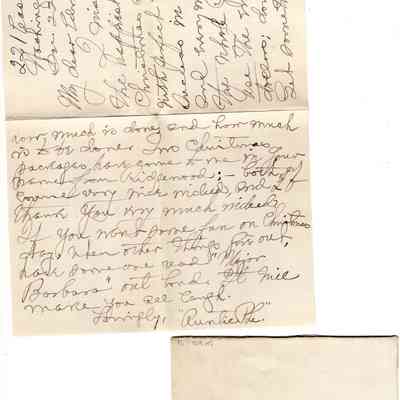 221 Eas
Washing
Dec. 2
My dear
I
The
Christmas
with perfect
success
and every
The whole
Use The
dollars;
Get some
very much is done, and how much
is to be done. Two Christmas
packages have come to me in your
name from Ridgewood; – both of
course very nice indeed, and I
Thank You very much indeed.
If You want some fun on Christmas
day, when other Things give out,
have some one read "Major
Barbara" out loud. It will
make you all laugh.
Lovingly, "Auntie Phe."